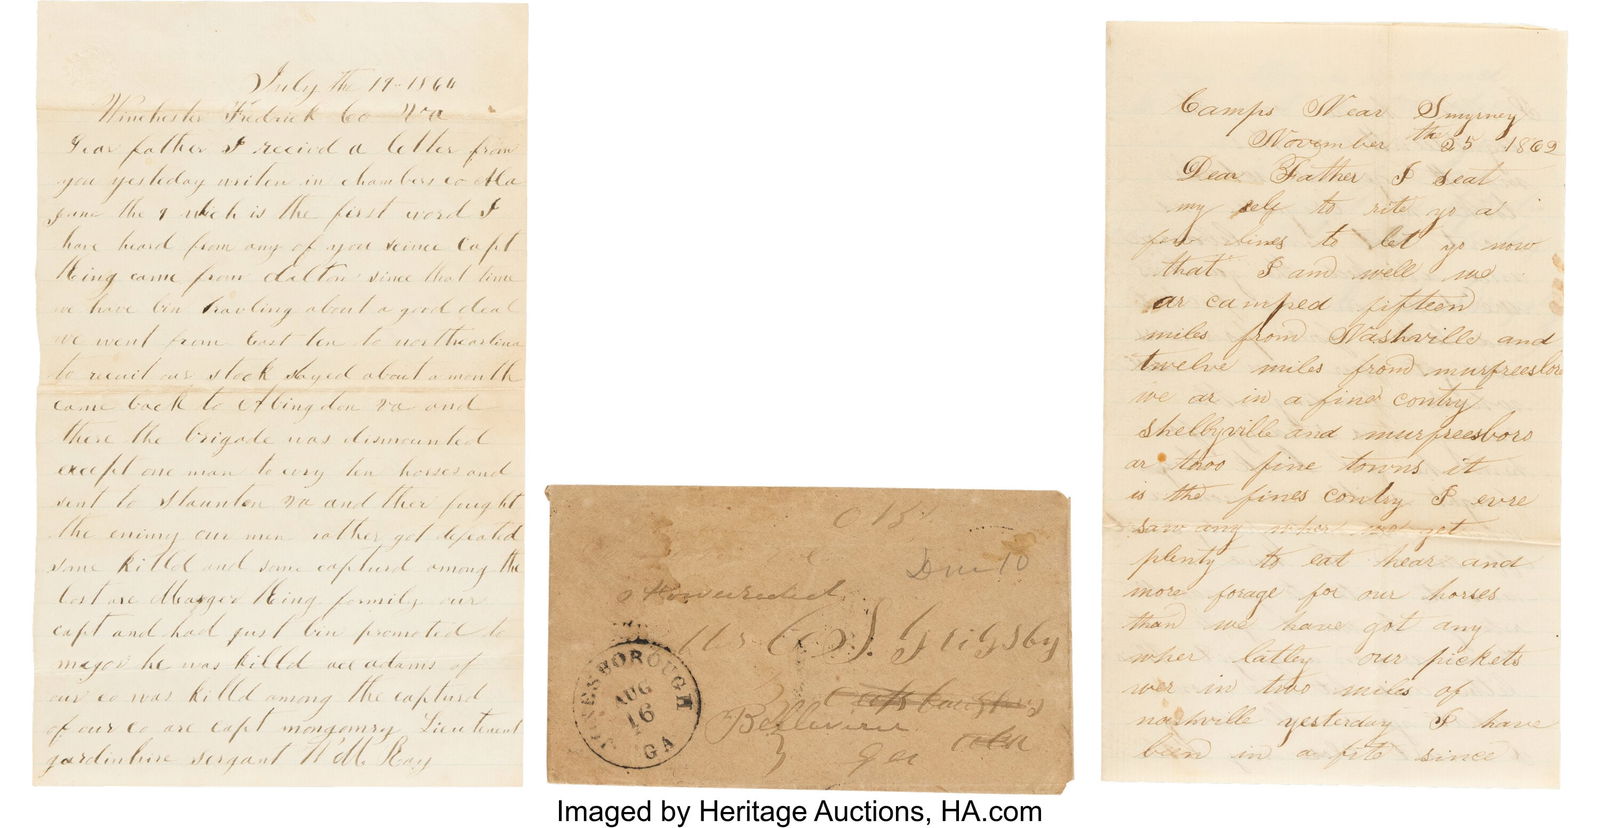 July the 19 1864
Winchester Fredrick Co Va
Dear father I recivd a letter from
you yesteday writen in chambers co Ala
June the 9 which is the first word I
have heard from any of you scince Capt
King came from dalton since that time
we have bin travling about a good deal
we went from East ten to northcarlina
to recuit our stock stayed about a month
came back to Abingdon va and
there the brigade was dismounted
except one man to evry ten horses and
sent to Staunton va and ther fought
the enimy our men rather got defeated
some killd and some capturd among the
lost are Magor King formily our
capt and had just bin promoted to
magor he was killd adams of
our co was killd among the capturd
of our co are capt mongomry Lieutenant
gardinhire sergant W M Kay
Due 10
Forwarded
Mrs S. Grigsby
Bellevue
Ga
JONESBOROUGH
AUG
16
GA
Camps Near Smyrney
November the 25 1862
Dear Father I seat
my self to rite yo a
few lines to let yo now
that I and well we
ar camped fifteen
miles from Nashville and
twelve miles from murfreesboro
we ar in a fine contry
shelbyville and murfreesboro
ar twoo fine towns it
is the fines contry I evre
saw any wher we get
plenty to eat hear and
more forage for our horses
than we have got any
wher latley our pickets
wer in two miles of
nashville yesterday I have
been in a fite since
Imaged by Heritage Auctions, HA.com